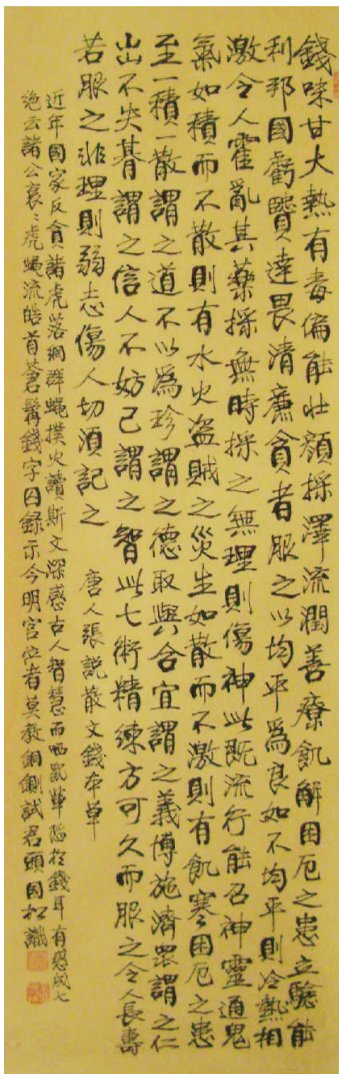 錢味甘大熱有毒偏能壯顏採澤流潤善療飢解困厄之患立驗能
利邦國虧賢達畏清廉貪者服之以均平為良如不均平則冷熱相
激令人霍亂其藥採無時採之無理則傷神此既流行能召神靈通鬼
氣如積而不散則有水火盜賊之災生如散而不激則有飢寒困厄之患
至一積一散謂之道不以為珍謂之德取與合宜謂之義博施濟眾謂之仁
出不失期謂之信人不妨己謂之智此七術精練方可久而服之令人長壽
若服之非理則弱志傷人切須記之 唐人張說散文錢本草
近年國家反貪諸虎落網群蠅撲火讀斯文深感古人智慧而哂罷輩陷於錢耳有感成七
絕云諸公袞〻虎蠅流皓首蒼髯錢字囚錄示今明官位者莫教銅鍘試君頭 松識